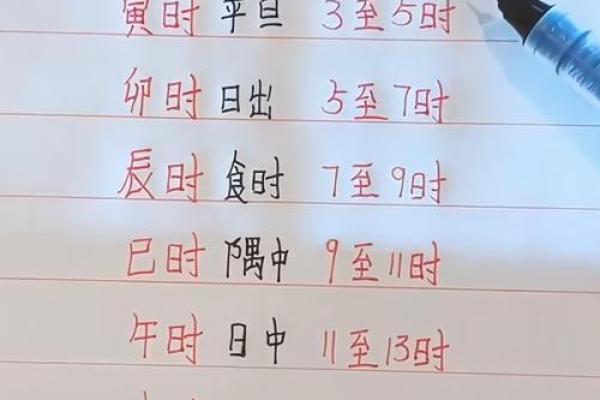 寅时 平旦 3至5时
卯时 日出 5至7时
辰时 食时 7至9时
巳时 隅中 9至11时
午时 日中 11至13时